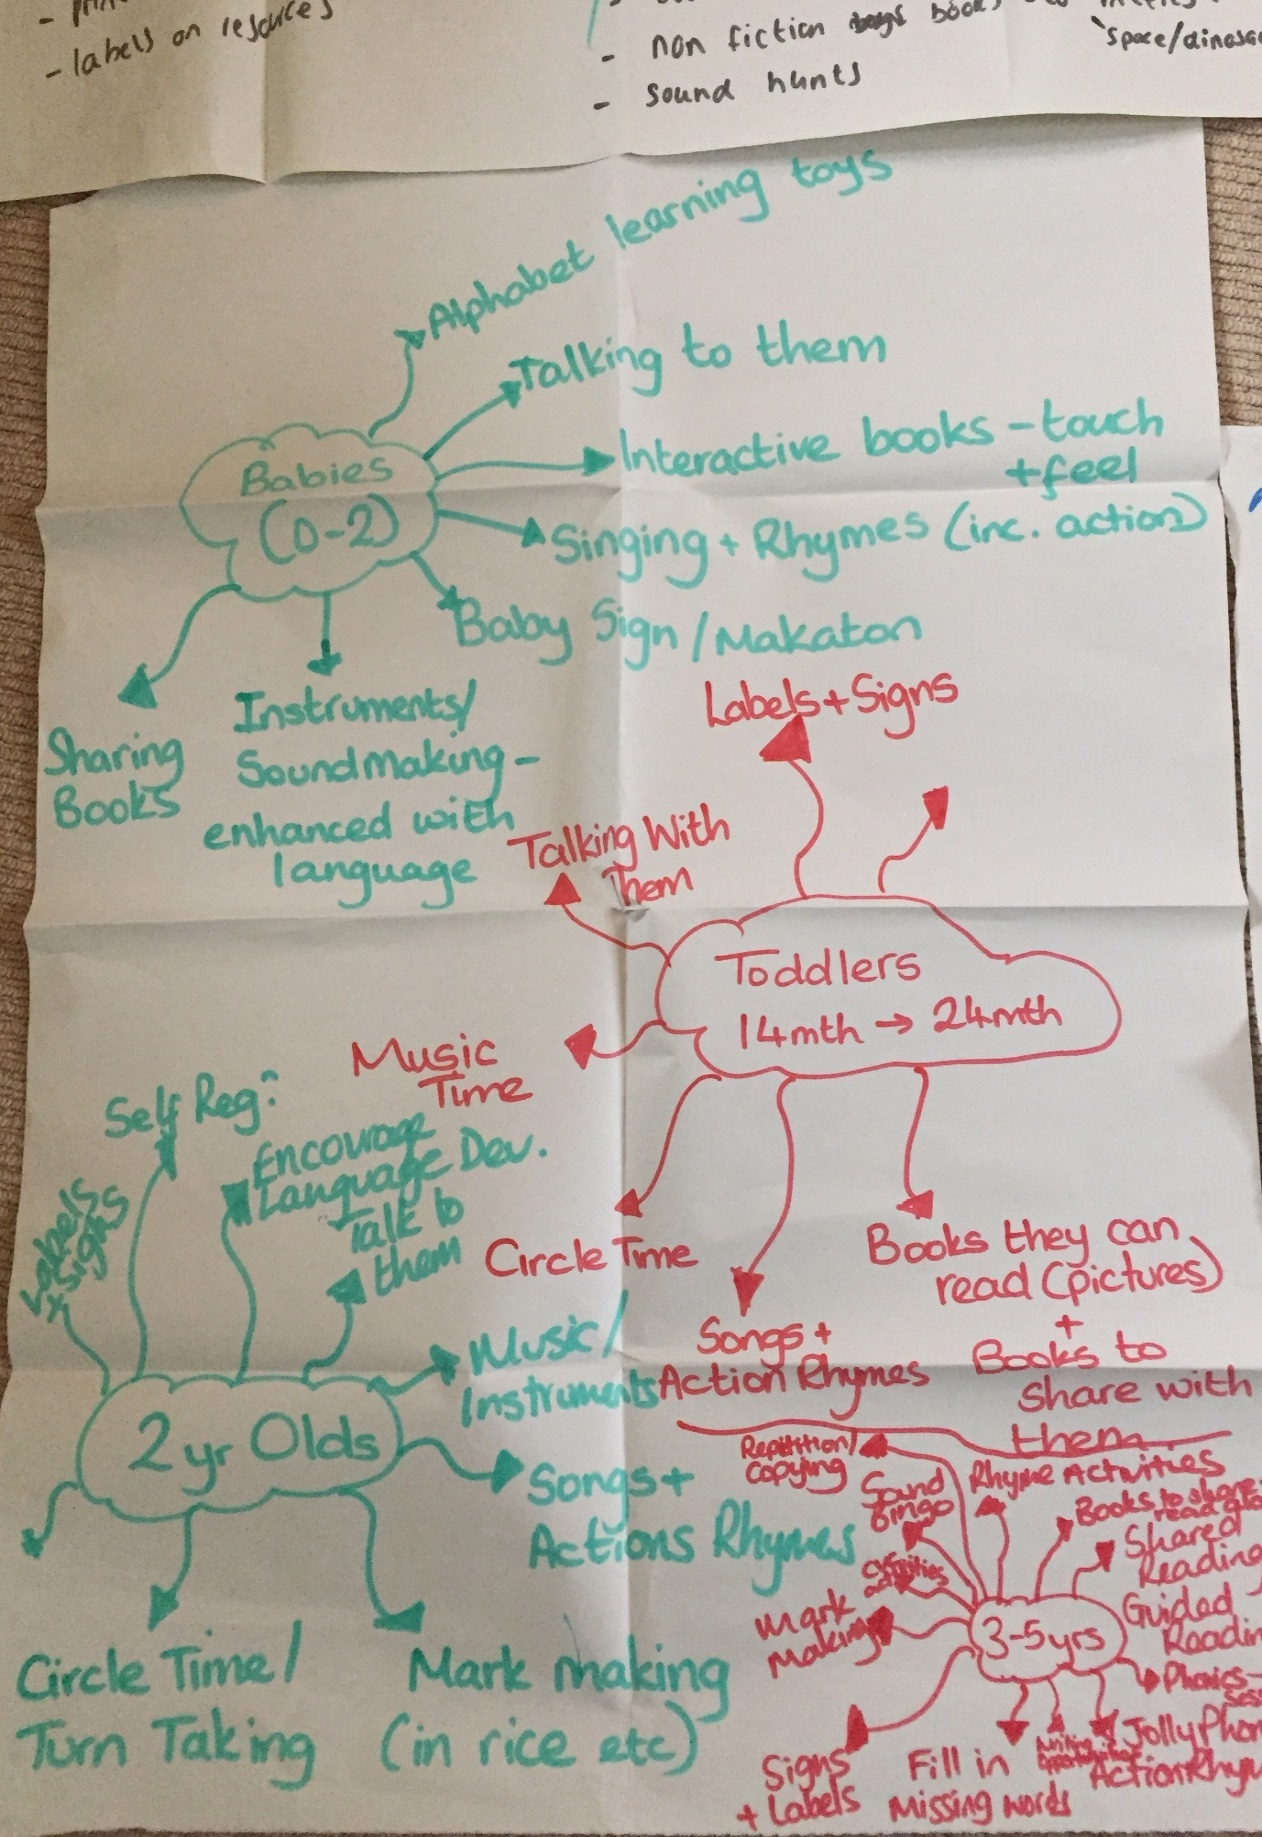 - labels on resources
- non fiction books
'space/dinosa
- sound hunts
Alphabet learning toys
Talking to them
Interactive books - touch
+ feel
Singing + Rhymes (inc. action)
Baby Sign / Makaton
Babies
(0-2)
Sharing
Books
Instruments/
Soundmaking -
enhanced with
language
Labels + Signs
Talking With
Them
Toddlers
14mth → 24mth
Music
Time
Circle Time
Songs +
Action Rhymes
Books they can
read (pictures)
+
Books to
share with
them
Self Reg?
Encourage
Language Dev.
Talk to
them
Labels
+ signs
Music/
Instruments
2 yr Olds
Songs +
Actions Rhymes
Circle Time/
Turn Taking
Mark making
(in rice etc)
Repitition/
Copying
Sound
Bingo
Rhyme Activities
Books to share
Shared
Reading
Guided
Readin
3-5yrs
Mark
Making
Phonics-
Sess
Jolly Phon
Action Rhym
Fill in
Missing words
Signs
+ Labels